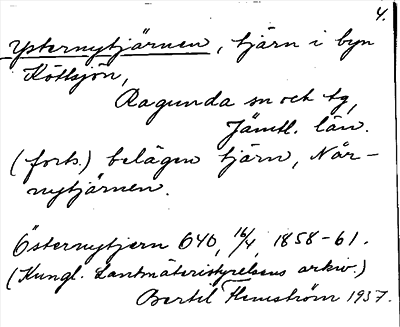 4.
Ysternytjärnen, tjärn i byn
Köttsjön,
Ragunda sn och tg,
Jämtl. län.
(forts.) belägen tjärn, När-
nytjärnen.
Östernytjern 640, 16/4, 1858-61.
(Kungl. Lantmäteristyrelsens arkiv.)
Bertil Flemström 1937.